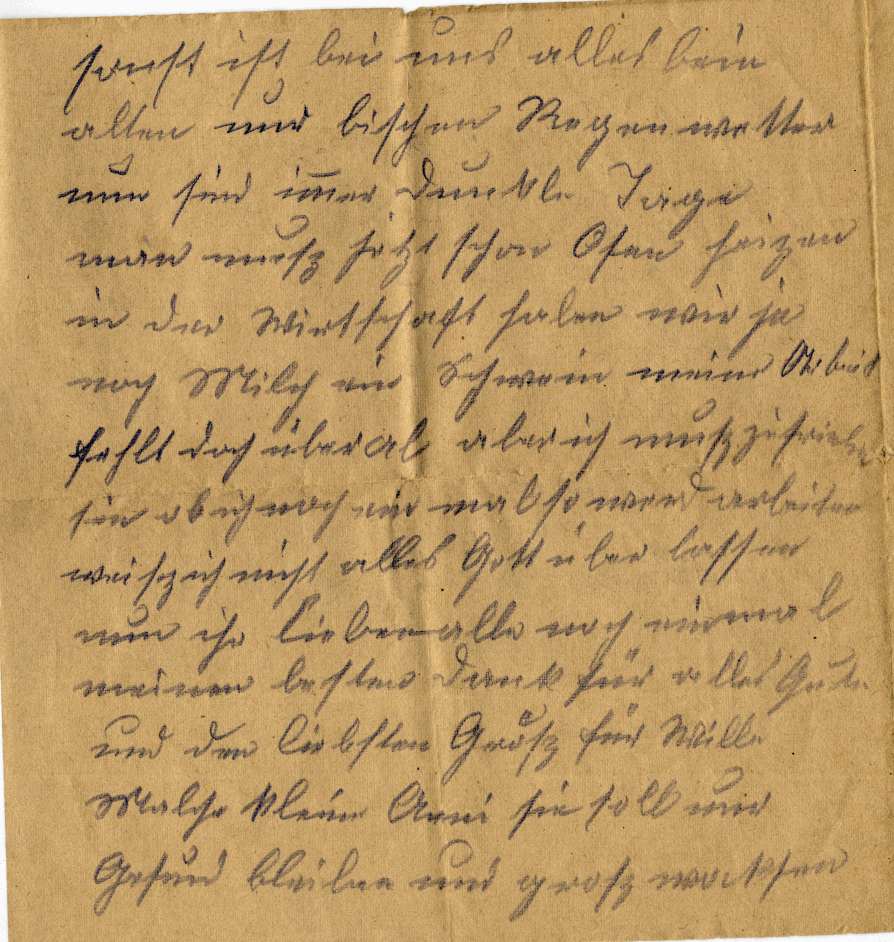 sonst ist bei uns alles bein
alten nur bischen Regenwetter
nun sind immer dunkle Tage
man musz jetzt schon Ofen heizen
in der Wirtschaft haben wir ja
noch Milch ein Schwein meine Arbeit
fehlt doch überal aber ich musz zufrieden
sein ob ich noch ein mal so werd arbeiten
weisz ich nicht alles Gott über lassen
nun ihr Lieben alle noch einmal
meinen besten Dank für alles Gute
und den liebsten Grusz für Wille
kleine Anni sie soll nur
Gesund bleiben und grosz wachsen